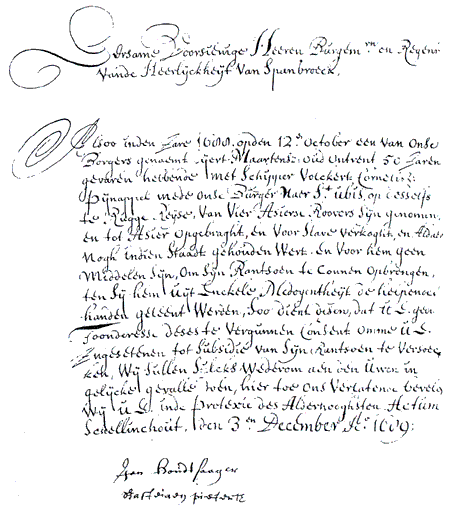 Eersame Voorsienige Heeren Burgem rn en Regeni
vande Heerlyckheyt Van Spanbroeck,
Alsoo inden Jare 1688. opden 12 October een van Onse
Borgers genaemt Maartensz Oud Ontrent 50 Jaren
gevaren hebbende met Schipper Volckert Cornelisz
Pijnappel mede Onse Burger Naer St ubis, op desselfs
te Rugge Reyse, Van Vier Asierse Roovers Syn genomen,
en tot Asier Opgebraght, en Voor Slave verkoght, en Aldaer
Nogh indien Staadt gehouden Wert. en Voor hem geen
Middelen Syn, Om Syn Rantsoen te Connen Opbrengen,
ten Sy hem Uyt Enckele Medogentheyt de
handen geleent Werden, Soo dient desen, dat U E. gen
Toonderesse deses te Vergunnen Consent Omme U E.
Ingesetenen tot Subsidie van Syn Rantsoen te Versoec
ken, Wy Sullen Sulcks Wederom aen den Uwen in
gelycke gevalle doen, hier toe Ons Verlatende bevelen
Wy U E. inde Protexie des Alderhooghsten Actum
Schellinchout, den 3 en December Ao 1689:
Jan Hondt
Bastiaen pietersz